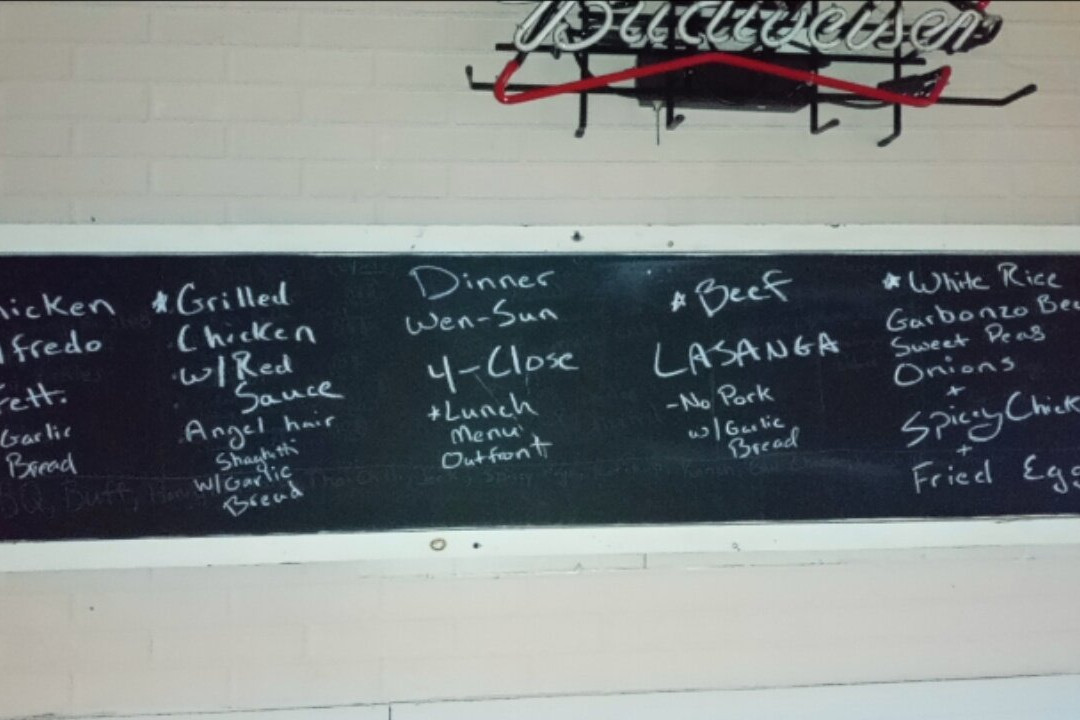 Budweiser
hicken
lfredo
Fett.
Garlic
Bread
*Grilled
Chicken
w/Red
Sauce
Angel hair
Shaghitti
w/Garlic
Bread
Dinner
Wen-Sun
4-Close
*Lunch
Menu
Outfront
*Beef
LASANGA
-No Pork
w/Garlic
Bread
*White Rice
Garbonzo Bea
Sweet Peas
Onions
+
Spicy Chick
+
Fried Egg